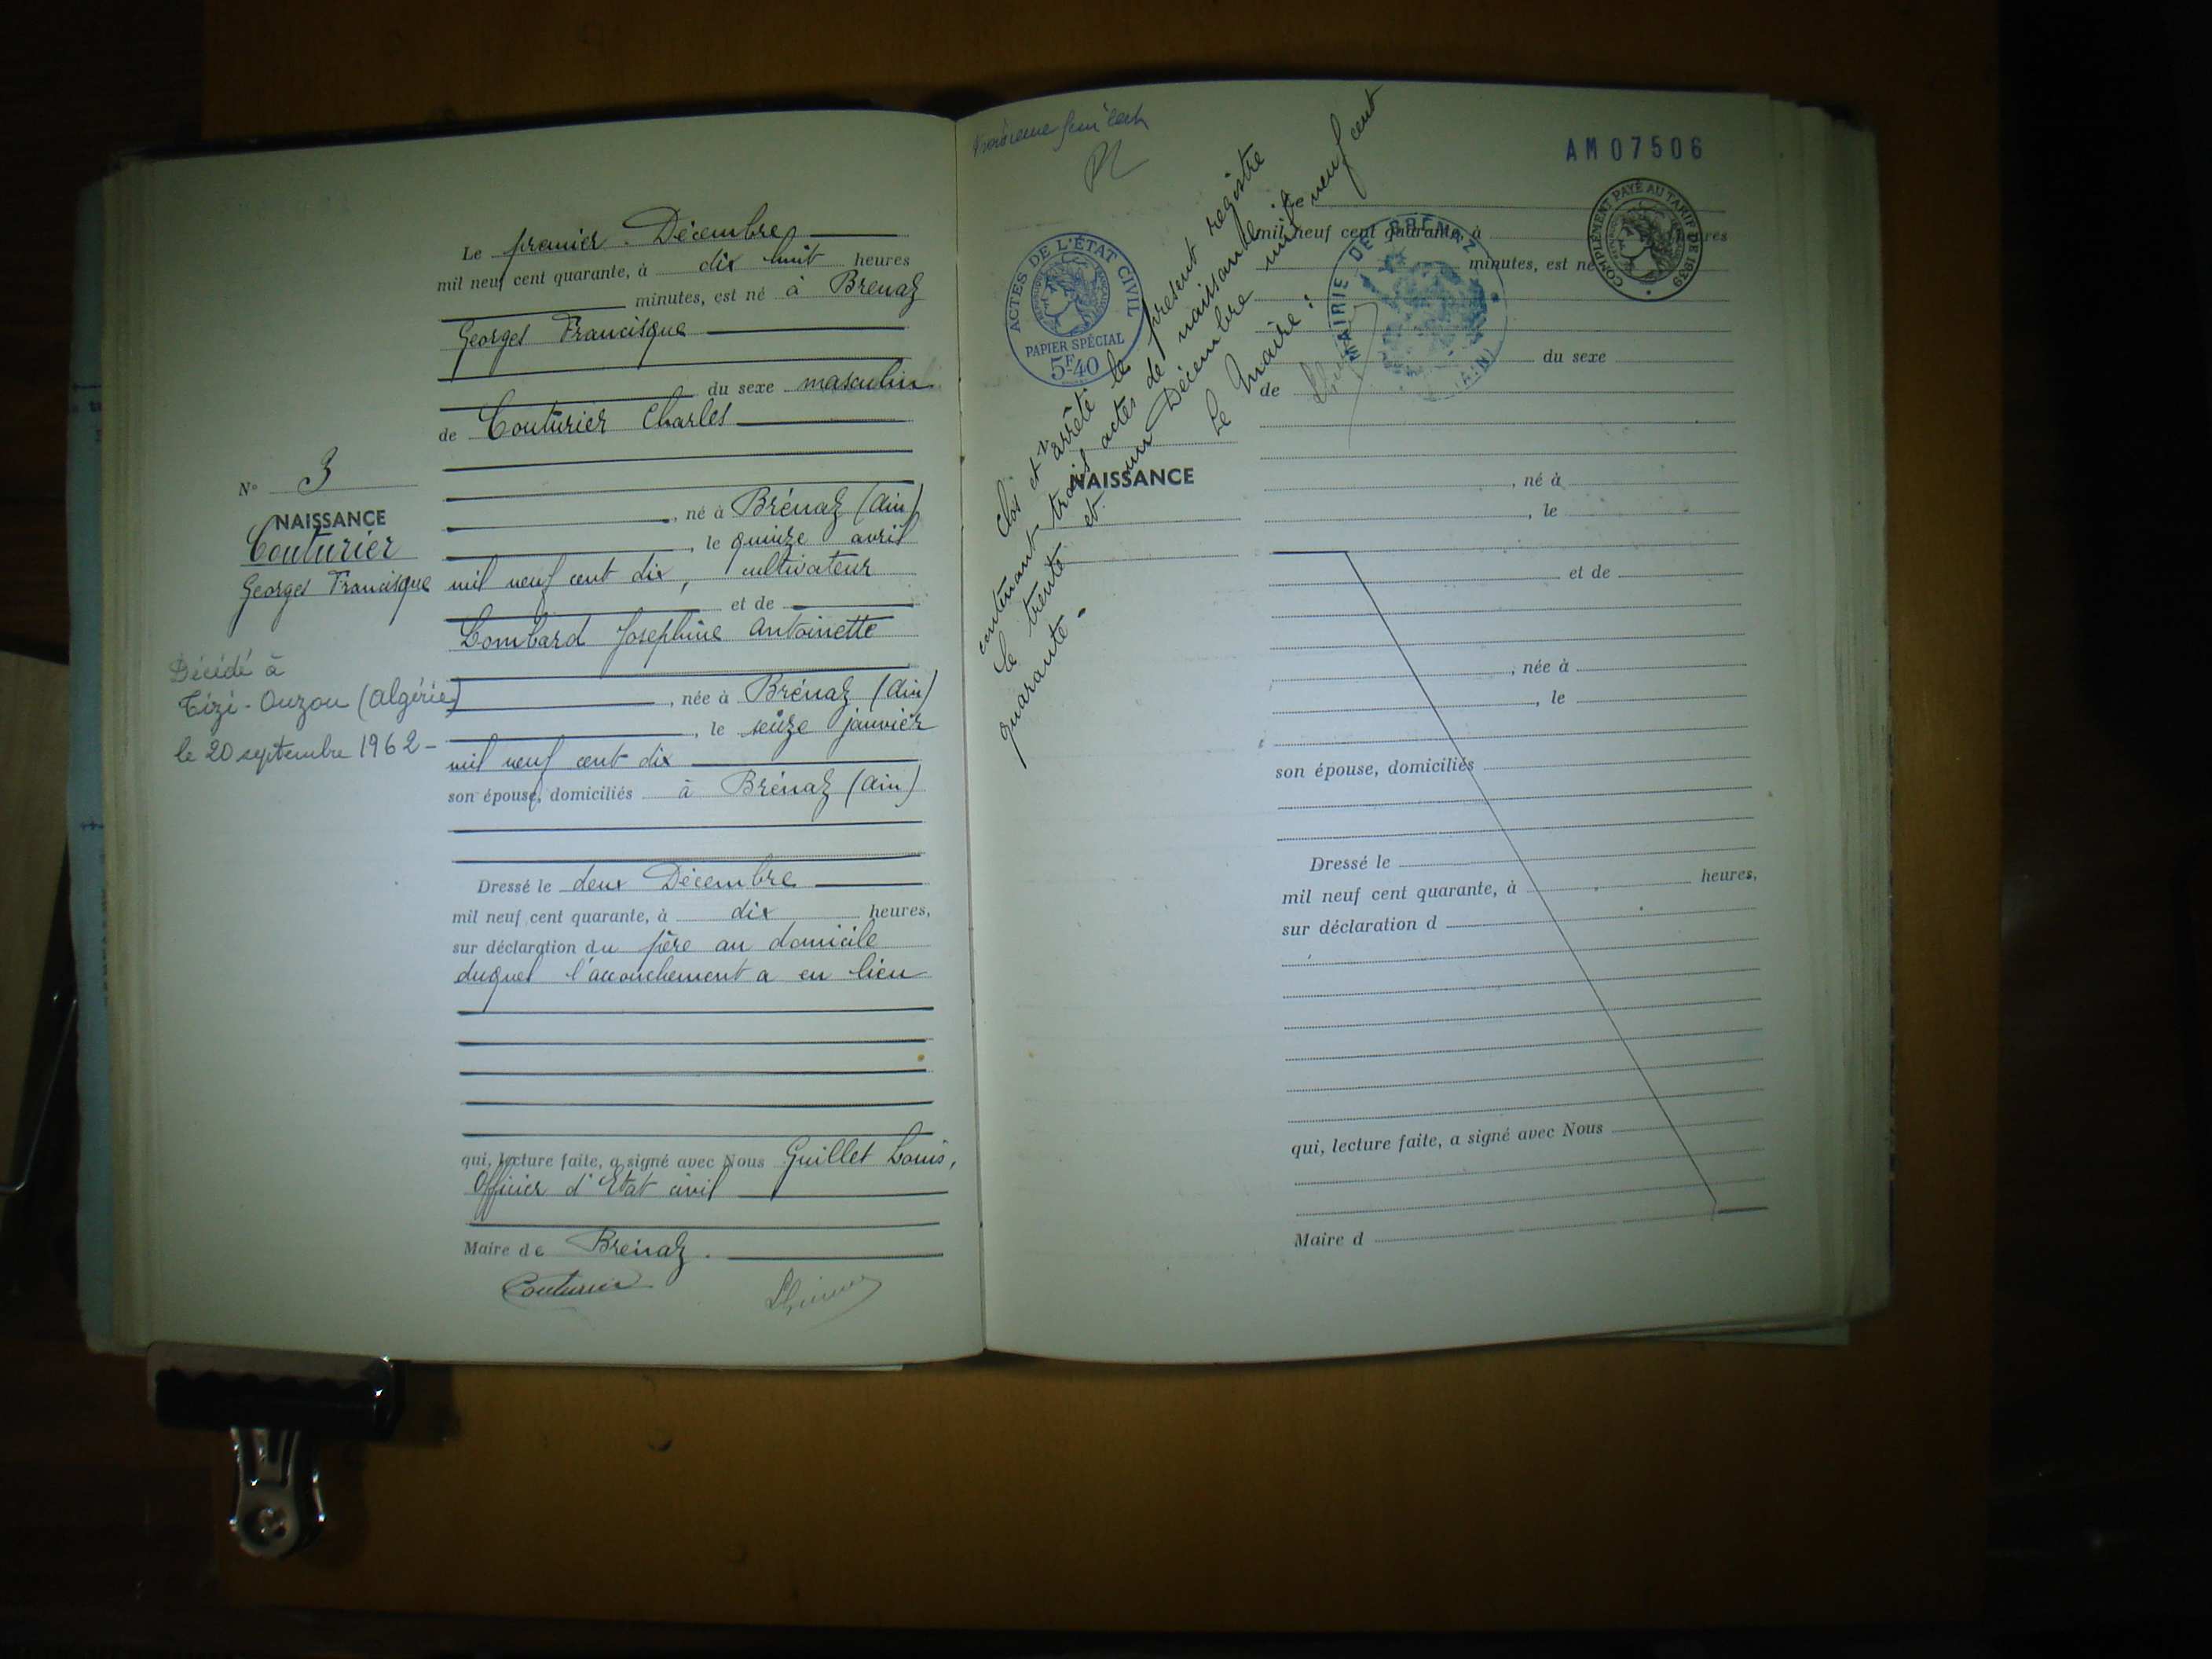 Le premier Décembre
mil neuf cent quarante, à dix huit heures
minutes, est né à Brenaz
Georges Francisque
du sexe masculin
de Couturier Charles
, né à Brénaz (Ain)
, le quinze avril
mil neuf cent dix, cultivateur
et de
Lombard Joséphine Antoinette
, née à Brénaz (Ain)
, le seize janvier
mil neuf cent dix
son épouse, domiciliés à Brénaz (Ain)
Dressé le deux Décembre
mil neuf cent quarante, à dix heures,
sur déclaration du père au domicile
duquel l'accouchement a eu lieu
qui, lecture faite, a signé avec Nous Guillet Louis,
Officier d'Etat civil
Maire de Brénaz.
Couturier
N° 3
NAISSANCE
Couturier
Georges Francisque
Décédé à
Tizi-Ouzou (Algérie)
le 20 septembre 1962-
AM07506
COMPLÉMENT PAYÉ AU TARIF DE 1939
ACTES DE L'ÉTAT CIVIL
PAPIER SPÉCIAL
5F40
MAIRIE DE BRÉNAZ
(AIN)
Clos et arrêté le présent registre
contenant trois actes de naissance
Le trente et un Décembre mil neuf cent
quarante.
Le Maire:
NAISSANCE
Le
mil neuf cent quarante, à heures
minutes, est né
du sexe
de
, né à
, le
et de
, née à
, le
son épouse, domiciliés
Dressé le
mil neuf cent quarante, à heures,
sur déclaration d
qui, lecture faite, a signé avec Nous
Maire d